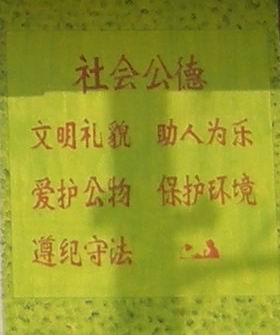 社会公德
文明礼貌 助人为乐
爱护公物 保护环境
遵纪守法